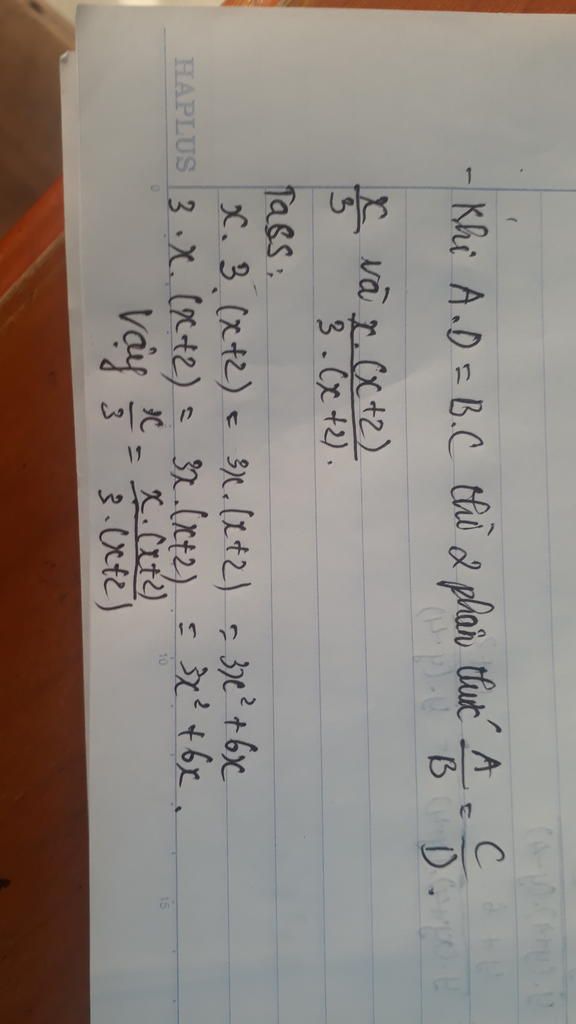 HAPLUS
- Khi A.D = B.C thì 2 phân thức A/B = C/D.
x/3 và x.(x+2)/3.(x+2).
Ta có:
x.3.(x+2) = 3x.(x+2) = 3x² + 6x
3.x.(x+2) = 3x.(x+2) = 3x² + 6x.
Vậy x/3 = x.(x+2)/3.(x+2)
0
10
15